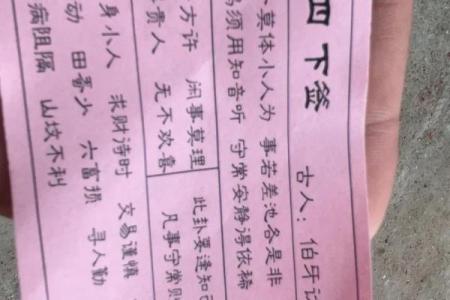 四 下签 古人：伯牙访
莫体小人为 事若差池各是非
须用知音听 守常安静得依稀
方许 闲事莫理 此卦要逢知己
贵人 无不欢喜 凡事守常则
身小人 求财待时 交易谨慎
动 田蚕少 六畜损 寻人勤
病阻隔 山坟不利